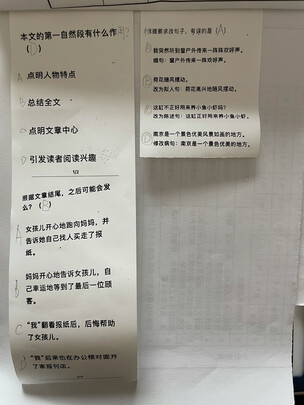 本文的第一自然段有什么作用?
(D)
A 点明人物特点
B 总结全文
C 点明文章中心
D 引发读者阅读兴趣
1/2
根据文章结尾，之后可能会发
么？(B)
A 女孩儿开心地跑向妈妈，并
告诉她自己找人买走了报
纸。
B 妈妈开心地告诉女孩儿，自
己幸运地等到了最后一位顾
客。
C “我”翻看报纸后，后悔帮助
了女孩儿。
D “我”后来也在办公楼对面开
了家报刊店。
要求改句子，有误的是(A)
A 我突然听到窗户外传来一阵欢呼声。
缩句：窗户外传来一阵欢呼声。
B 荷花随风摆动。
改为拟人句：荷花高兴地随风摆动。
C 这缸不正好用来养小鱼小虾吗？
改为陈述句：这缸正好用来养小鱼小虾。
D 南京是一个景色优美风景如画的地方。
修改病句：南京是一个景色优美的地方。